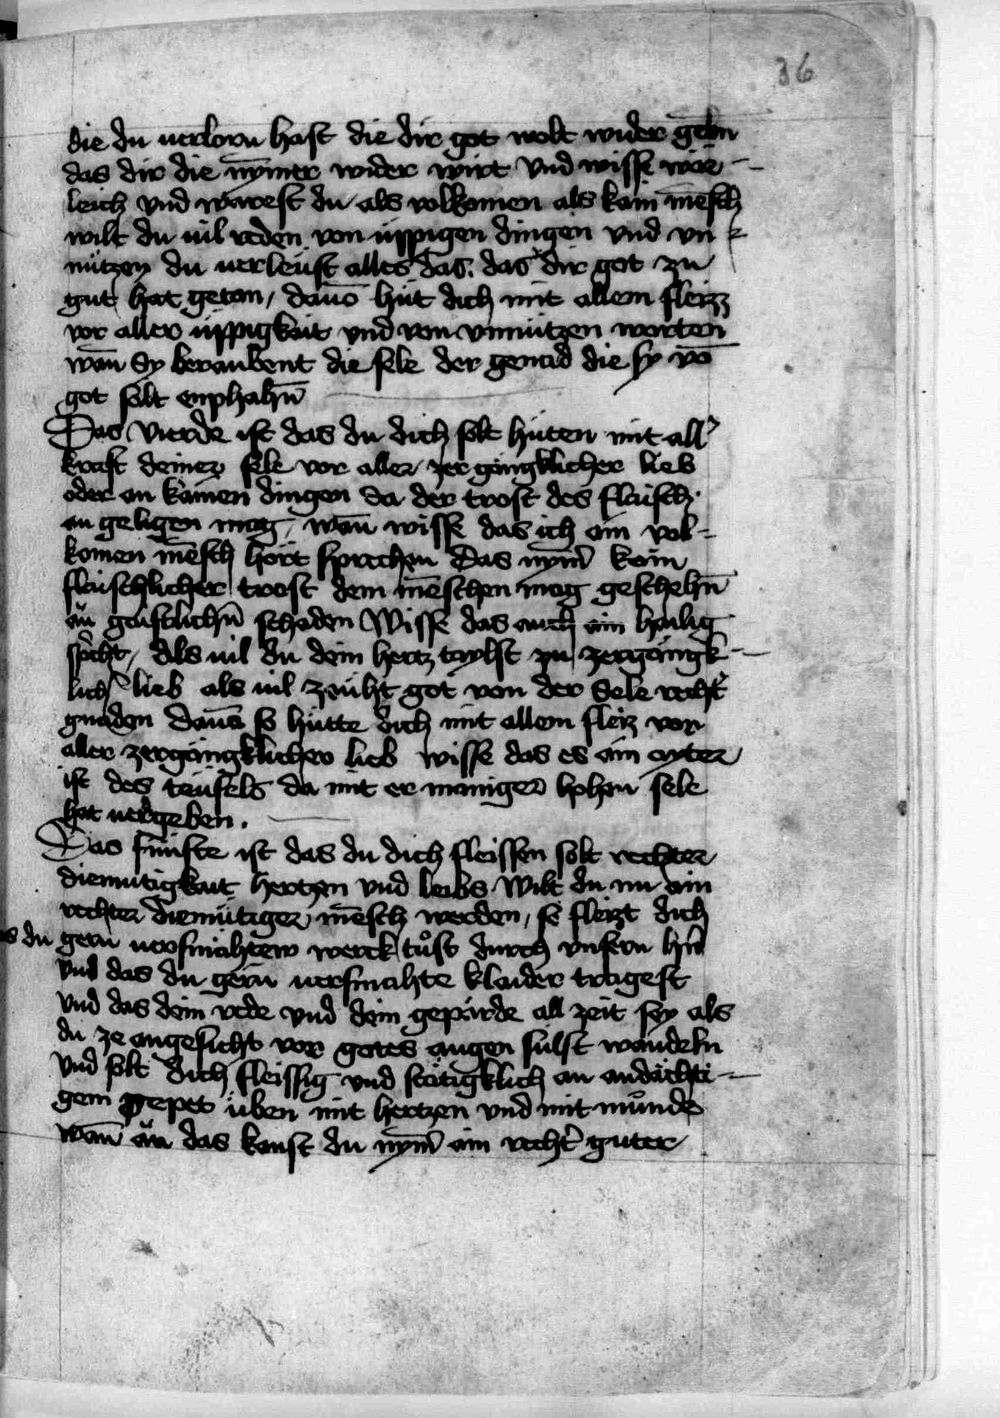 36
die du uerlorn hast die dir got wolt wider gebn
das dir die nym̄er wider wirt vnd wisse wär¬
leich vnd warest du als volkomen als kain mēsch
wilt du uil reden von üppigen dingen vnd vn¬
nützen du uerleust alles das. das dir got zu
gut hat getan, dauō hüt dich mit allem fleizz
vor aller üppigkait vnd von vnnützen worten
wan̄ Sy beraubent die sele der genad die sy vō
got solt enphahn̄
Das vierde ist das du dich solt hüten mit all᷑
kraft deiner sele vor aller zergängklicher lieb
oder an kainen dingen da der trost des flaisch
an geligen mag, wan̄ wisse das ich ain vol¬
komen mēsch hört sprechen das nym̄ kain
flaischlicher trost dem mēschen mag geschehn̄
än gaistlichn̄ schaden Wisse das auch ain hailig
sp᷑cht, Als uil du dein hertz taylst zu zergängk¬
lich᷑ lieb als uil zeüht got von der Sele recht᷑
gnaden dauō so hütte dich mit allem fleiz vor
aller zergängklicher lieb wisse das es ain ayter
ist des teufels da mit er maniger hohen sele
hat uergeben.
Das fünfte ist das du dich fleissen solt rechter
diemutigkait hertzen vnd leibs Wilt du nu ain
rechter diemütiger mēsch werden, so fleizt dich
du gern uersmähtew werck tuͦst durch vnsern hn̄
vnd das du gern uersmahte klaider tragest
vnd das dein rede vnd dein gepärde all zeit sey als
du ze angesicht vor gotes augen sülst wandeln
vnd solt dich fleissig vnd stätigklich an andächti¬
gem gepet üben mit hertzen vnd mit muͦnde
wan̄ än das kanst du nym̄ ain recht᷑ guter